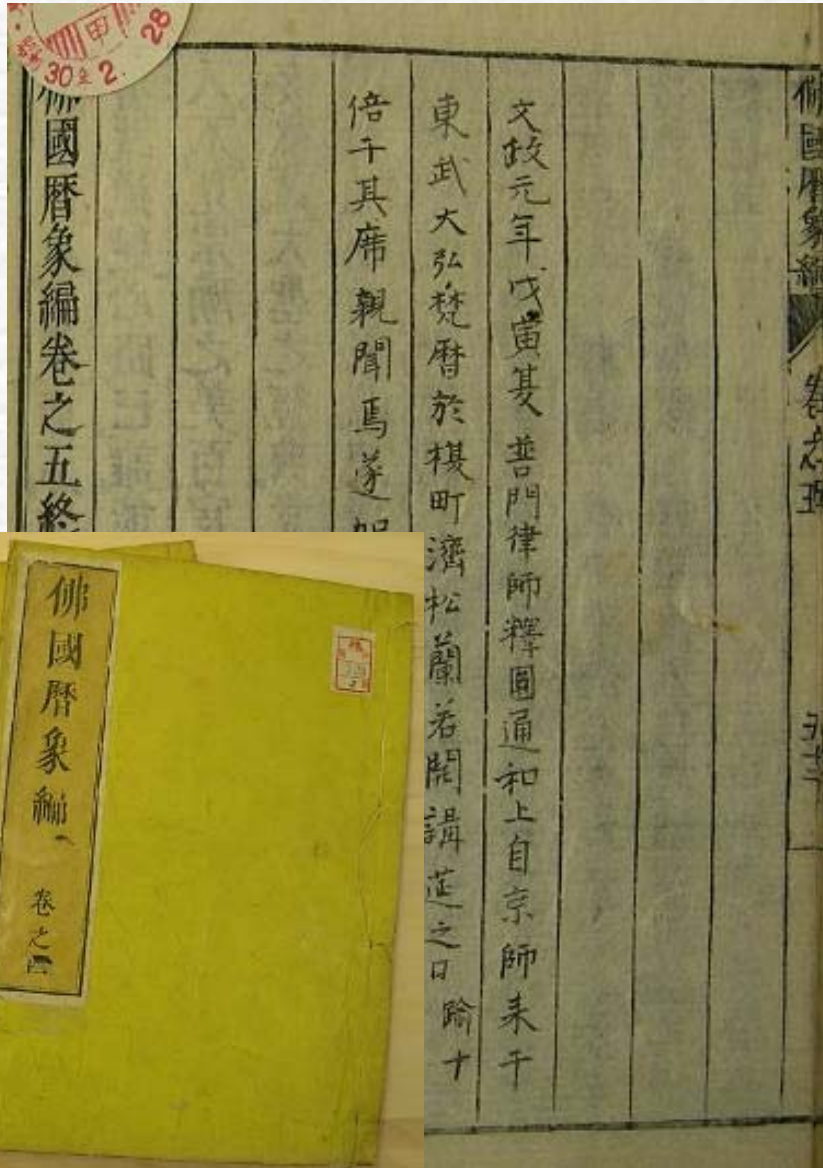 佛國暦象編
卷之五
文政元年戊寅夏普門律師釋圓通和上自京師来于
東武大弘梵暦於榎町濟松蘭若開講莚之日踰十
倍于其席親聞焉遂
佛國暦象編卷之五終
甲
30 2 28
佛國暦象編
卷之四